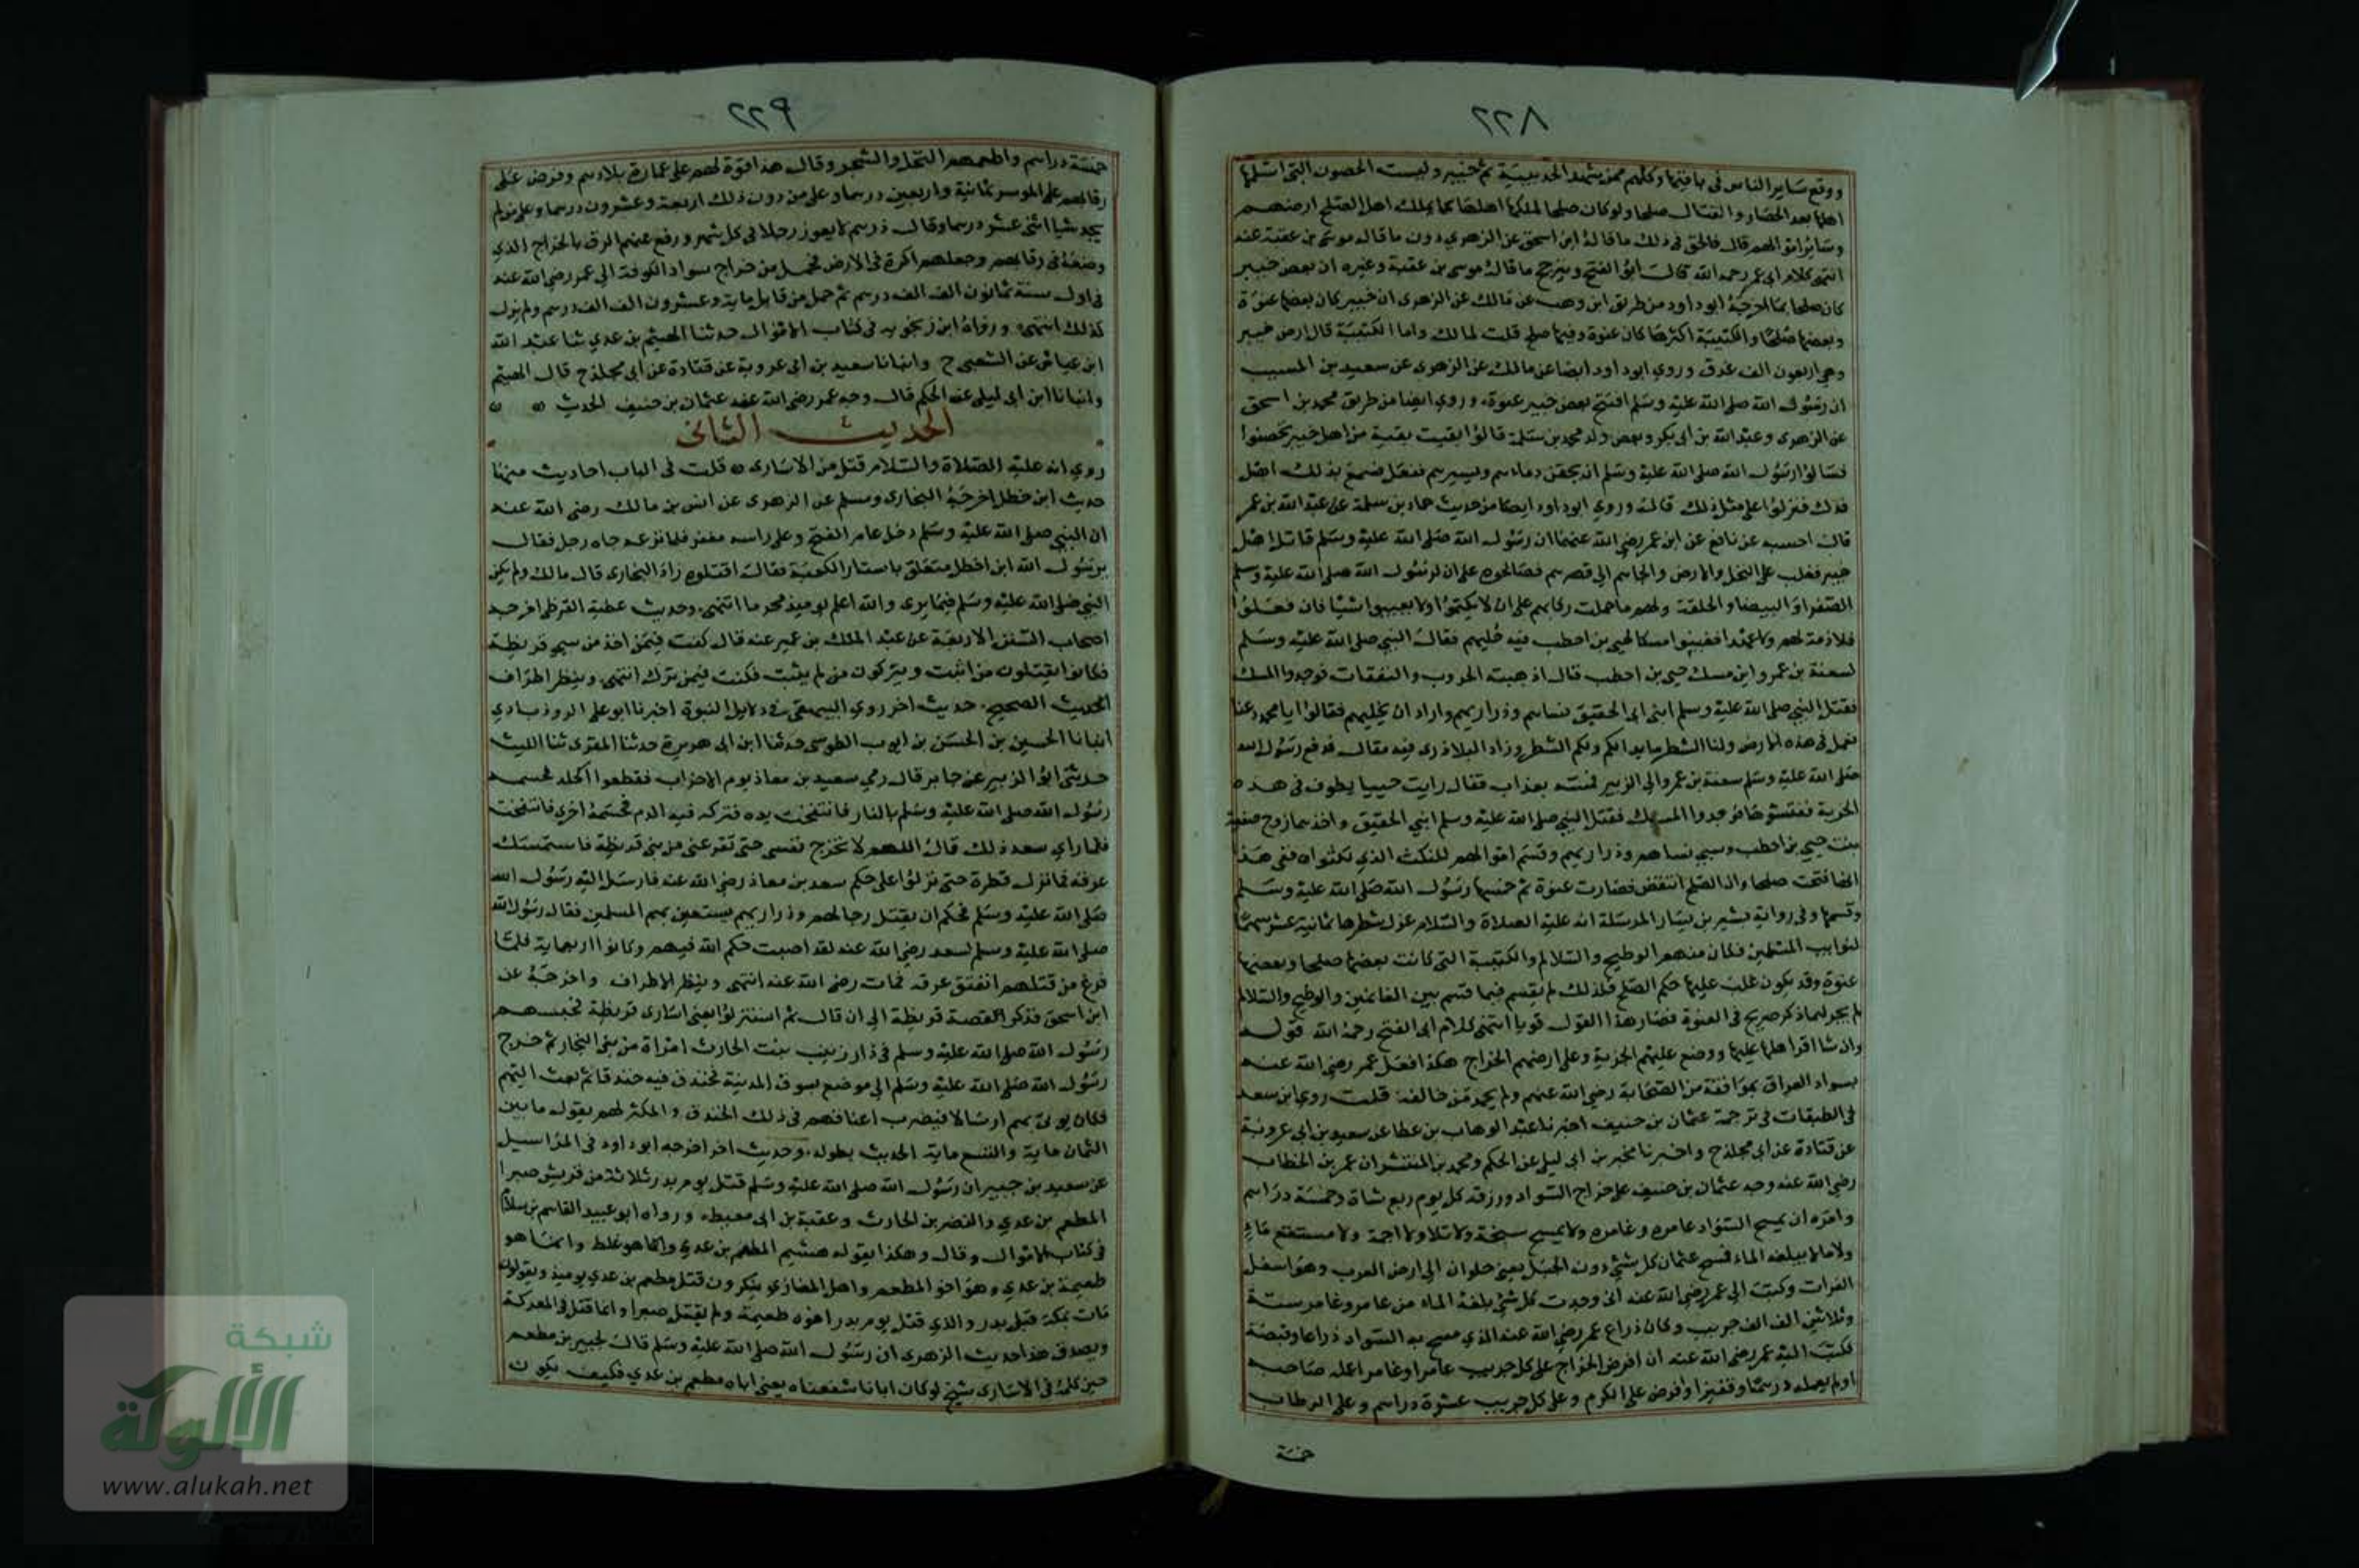 ٢٢٨
ووقع ساير الناس في باقيتها وكلهم ممن يشهد الحديبية ثم خيبر وليست الحصون التي اسلمها
اهلها بعد الحصار والقتال صلحا ولو كان صلحا لملكها اهلها كما يملك اهل الصلح ارضهم
وساير اموالهم قال فالحق في ذلك ما قاله ابن اسحق عن الزهري دون ما قاله موسى بن عقبة عنه
انتهى كلام ابي عمر رحمه الله قال ابو الفتح ويترجح ما قاله موسى بن عقبة وغيره ان بعض خيبر
كان صلحا بما اخرجه ابو داود من طريق ابن وهب عن مالك عن الزهري ان خيبر كان بعضها عنوة
وبعضها صلحا والكتيبة اكثرها كان عنوة وفيها صلح قلت لمالك واما الكتيبة قال ارض خيبر
وهي اربعون الف عذق وروي ابو داود ايضا عن مالك عن الزهري عن سعيد بن المسيب
ان رسول الله صلى الله عليه وسلم افتتح بعض خيبر عنوة وروي ايضا من طريق محمد بن اسحق
عن الزهري وعبد الله بن ابي بكر وبعض ولد محمد بن مسلمة قالوا بقيت بقية من اهل خيبر تحصنوا
فسالوا رسول الله صلى الله عليه وسلم ان يحقن دماءهم ويسيرهم ففعل فسمع بذلك اهل
فدك فنزلوا على مثل ذلك قال وروي ابو داود ايضا من حديث حماد بن سلمة عن عبد الله بن عمر
قال احسبه عن نافع عن ابن عمر رضي الله عنهما ان رسول الله صلى الله عليه وسلم قاتل اهل
خيبر فغلب على النخل والارض والجاهم الى قصرهم فصالحوه على ان لرسول الله صلى الله عليه وسلم
الصفرا والبيضا والحلقة ولهم ما حملت ركابهم على ان لا يكتموا ولا يغيبوا شيئا فان فعلوا
فلا ذمة لهم ولا عهد فغيبوا مسكا لحيي بن اخطب فيه حليهم فقال النبي صلى الله عليه وسلم
لسعنة بن عمرو اين مسك حيي بن اخطب قال اذهبته الحروب والنفقات فوجدوا المسك
فقتل النبي صلى الله عليه وسلم ابني ابي الحقيق نساهم وذراريهم واراد ان يجليهم فقالوا يا محمد دعنا
نعمل في هذه الارض ولنا الشطر ما بدا لكم ولكم الشطر وزاد البلاذري فيه فقال فدفع رسول الله
صلى الله عليه وسلم سعنة بن عمرو الى الزبير فمسه بعذاب فقال رايت حييا يطوف في هذه
الخربة ففتشوها فوجدوا المسك فقتل النبي صلى الله عليه وسلم ابني الحقيق واحدهما زوج صفية
بنت حيي بن اخطب وسبي نساهم وذراريهم وقسم اموالهم للنكث الذي نكثوا ففي هذا
انها فتحت صلحا وان الصلح انتقض فصارت عنوة ثم خمسها رسول الله صلى الله عليه وسلم
وقسمها وفي رواية بشير بن يسار المرسلة انه عليه الصلاة والسلام عزل شطرها ثمانية عشر سهما
لنوايب المسلمين فكان منهم الوطيح والسلالم والكتيبة التي كانت بعضها صلحا وبعضها
عنوة وقد يكون غلب عليها حكم الصلح فلذلك لم يقسم فيما قسم بين الغانمين والوطيح والسلالم
لم يجر لهما ذكر صريح في العنوة فصار هذا القول قويا انتهى كلام ابي الفتح رحمه الله قوله
وان شا اقر اهلها عليها ووضع عليهم الجزية وعلى ارضهم الخراج هكذا فعل عمر رضي الله عنه
بسواد العراق بموافقة من الصحابة رضي الله عنهم ولم يحمد من خالفه قلت روي ابن سعد
في الطبقات في ترجمة عثمان بن حنيف اخبرنا عبد الوهاب بن عطا عن سعيد بن ابي عروبة
عن قتادة عن ابي مجلز ح واخبرنا مخبر بن ابي ليلى عن الحكم ومحمد بن المنتشر ان عمر بن الخطاب
رضي الله عنه وجه عثمان بن حنيف على خراج السواد ورزقه كل يوم ربع شاة وخمسة دراهم
وامره ان يمسح السواد عامره وغامره ولا يمسح سبخة ولا تلا ولا اجمة ولا مستنقع ماء
ولا ما لم يبلغه الماء فمسح عثمان كل شئ دون الجبل يعني حلوان الى ارض العرب وهو اسفل
الفرات وكتب الى عمر رضي الله عنه اني وجدت كل شئ بلغه الماء من عامر وغامر ستة
وثلاثين الف الف جريب وكان ذراع عمر رضي الله عنه الذي مسح به السواد ذراعا وقبضة
فكتب اليه عمر رضي الله عنه ان افرض الخراج على كل جريب عامر او غامر اعمله صاحبه
او لم يعمله درهما وقفيزا وافرض على الكرم وعلى كل جريب عشرة دراهم وعلى الرطاب
خمسة
٢٢٩
خمسة دراهم واطعمهم النخل والشجر وقال هذا قوة لهم على عمارة بلادهم وفرض على
رقابهم على الموسر ثمانية واربعين درهما وعلى من دون ذلك اربعة وعشرون درهما وعلى من لم
يجد شيا اثنى عشر درهما وقال درهم لا يعوز رجلا في كل شهر ورفع عنهم الرق بالخراج الذي
وضعه في رقابهم وجعلهم اكرة في الارض فحمل من خراج سواد الكوفة الى عمر رضي الله عنه
في اول سنة ثمانون الف الف درهم ثم حمل من قابل ماية وعشرون الف الف درهم ولم يزل
كذلك انتهى ورواه ابن زنجويه في كتاب الاموال حدثنا الهيثم بن عدي ثنا عبد الله
ابن عياش عن الشعبي ح وانبانا سعيد بن ابي عروبة عن قتادة عن ابي مجلز ح قال الهيثم
وانبانا ابن ابي ليلى عن الحكم قال وجه عمر رضي الله عنه عثمان بن حنيف الحديث
الحديث الثاني
روي انه عليه الصلاة والسلام قتل من الاسارى قلت في الباب احاديث منها
حديث ابن خطل اخرجه البخاري ومسلم عن الزهري عن انس بن مالك رضي الله عنه
ان النبي صلى الله عليه وسلم دخل عام الفتح وعلى راسه مغفر فلما نزعه جاه رجل فقال
يرسول الله ابن اخطل متعلق باستار الكعبة فقال اقتلوه زاد البخاري قال مالك ولم يكن
النبي صلى الله عليه وسلم فيما يرى والله اعلم يوميذ محرما انتهى وحديث عطية القرظي اخرجه
اصحاب السنن الاربعة عن عبد الملك بن عمير عنه قال كنت فيمن اخذ من سبي قريظة
فكانوا يقتلون من انبت ويتركون من لم ينبت فكنت فيمن ترك انتهى وينظر اطراف
الحديث الصحيح حديث اخر روي البيهقي في دلايل النبوة اخبرنا ابو علي الروذبادي
انبانا الحسين بن الحسن بن ايوب الطوسي حدثنا ابن ابي هريرة حدثنا المقري ثنا الليث
حدثني ابو الزبير عن جابر قال رمي سعيد بن معاذ يوم الاحزاب فقطعوا اكحله فحسمه
رسول الله صلى الله عليه وسلم بالنار فانتفخت يده فتركه فنزفه الدم فحسمه اخري فانتفخت
فلما راي سعد ذلك قال اللهم لا تخرج نفسي حتى تقر عيني من بني قريظة فاستمسك
عرقه فما نزل قطرة حتى نزلوا على حكم سعد بن معاذ رضي الله عنه فارسل اليه رسول الله
صلى الله عليه وسلم فحكم ان يقتل رجالهم وذراريهم يستعين بهم المسلمين فقال رسول الله
صلى الله عليه وسلم لسعد رضي الله عنه لقد اصبت حكم الله فيهم وكانوا اربعماية فلما
فرغ من قتلهم انفتق عرقه فمات رضي الله عنه انتهى وينظر الاطراف واخرجه عن
ابن اسحق فذكر القصة قريظة الى ان قال ثم استنزلوا يعني اسارى قريظة فحبسهم
رسول الله صلى الله عليه وسلم في دار زينب بنت الحارث امراة من بني النجار ثم خرج
رسول الله صلى الله عليه وسلم الى موضع بسوق المدينة فخندق فيه خندقا ثم بعث اليهم
فكان يوتى بهم ارسالا فيضرب اعناقهم في ذلك الخندق والمكثر لهم يقول ما بين
الثمان ماية والتسع ماية الحديث بطوله وحديث اخر اخرجه ابو داود في المراسيل
عن سعيد بن جبير ان رسول الله صلى الله عليه وسلم قتل يوم بدر ثلاثة من قريش صبرا
المطعم بن عدي والنضر بن الحارث وعقبة بن ابي معيط ورواه ابو عبيد القاسم بن سلام
في كتاب الاموال وقال وهكذا يقول هشيم المطعم بن عدي وانما هو غلط وانما هو
طعيمة بن عدي وهو اخو المطعم واهل المغازي ينكرون قتل مطعم بن عدي يوميذ ويقولون
مات بمكة قبل بدر والذي قتل يوم بدر اخوه طعيمة ولم يقتل صبرا وانما قتل في المعركة
ويصدق هذا حديث الزهري ان رسول الله صلى الله عليه وسلم قال لجبير بن مطعم
حين كلمه في الاسارى شيخ لو كان اتانا شفعناه يعني اباه مطعم بن عدي فكيف يكون
شبكة
الألوكة
www.alukah.net